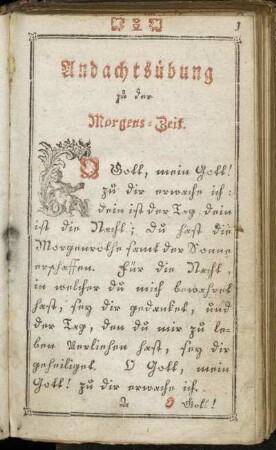 3
Andachtsübung
zu der
Morgens-Zeit.
O Gott, mein Gott!
zu dir erwache ich:
dein ist der Tag, dein
ist die Nacht; Du hast die
Morgenröthe samt der Sonne
erschaffen. Für die Nacht,
in welcher du mich bewahret
hast, sey dir gedanket, und
der Tag, den du mir zu le-
ben verliehen hast, sey dir
geheiliget. O Gott, mein
Gott! zu dir erwache ich.
O Got.!